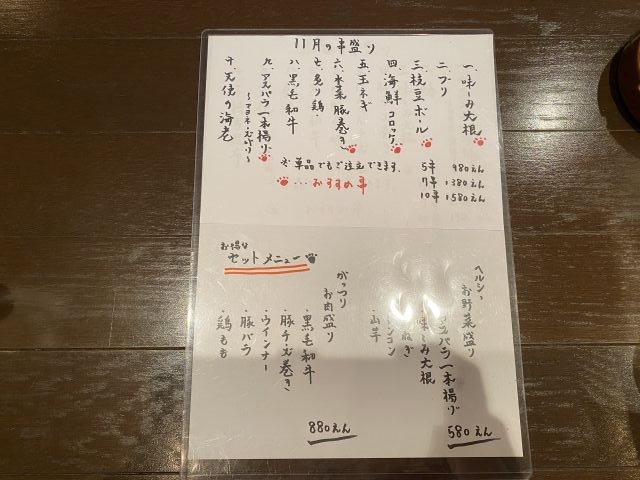 11月の串盛り
一.味しみ大根
二.ブリ
三.枝豆ボール
四.海鮮コロッケ
五.玉ネギ
六.水菜豚巻き
七.炙り鶏
八.黒毛和牛
九.アスパラ一本揚り
十.天使の海老
5串 980えん
7串 1380えん
10串 1580えん
※単品でもご注文できます。
…おすすめ串
お得な
セットメニュー
ヘルシー
お野菜盛り
スパラ一本揚り
味しみ大根
ねぎ
レンコン
・山芋
580えん
がっつり
お肉盛り
・黒毛和牛
・豚チーズ巻き
・ウインナー
・豚バラ
・鶏もも
880えん